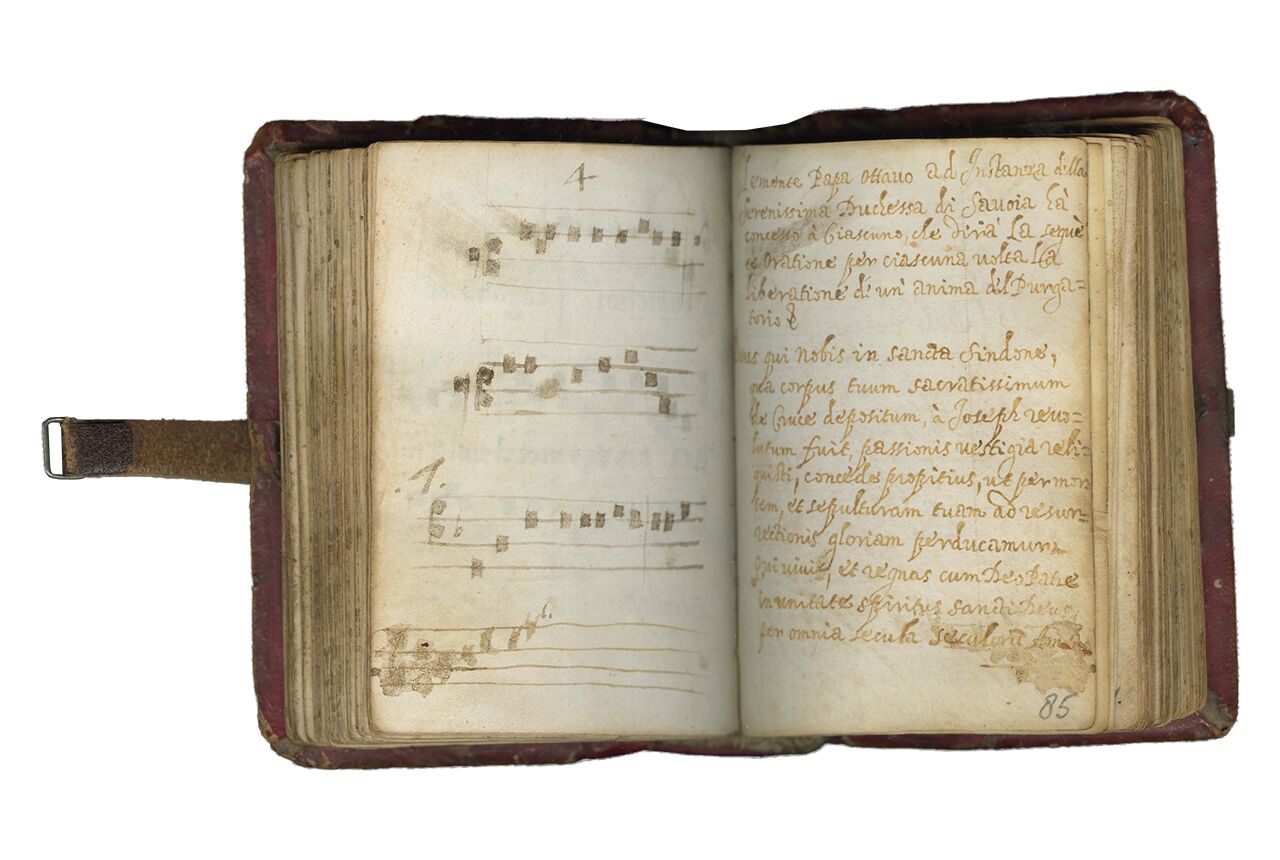 4
.1.
Clemente Papa Ottavo ad Instanza della
Serenissima Duchessa di Savoia hà
concesso à Ciascuno, che dirà La seguẽ
te Oratione per ciascuna volta La
liberatione di un' anima del Purga=
torio
Deus qui Nobis in sancta Sindone,
qua corpus tuum sacratissimum
de Cruce depositum, à Joseph revo=
lutum fuit, passionis vestigia reli=
quisti, concede propitius, ut per mor
tem, et sepulturam tuam ad resur=
rectionis gloriam perducamur.
Qui vivis, et regnas cum Deo Patre
in unitate spiritus sancti Deus
per omnia secula seculorũ Am
85